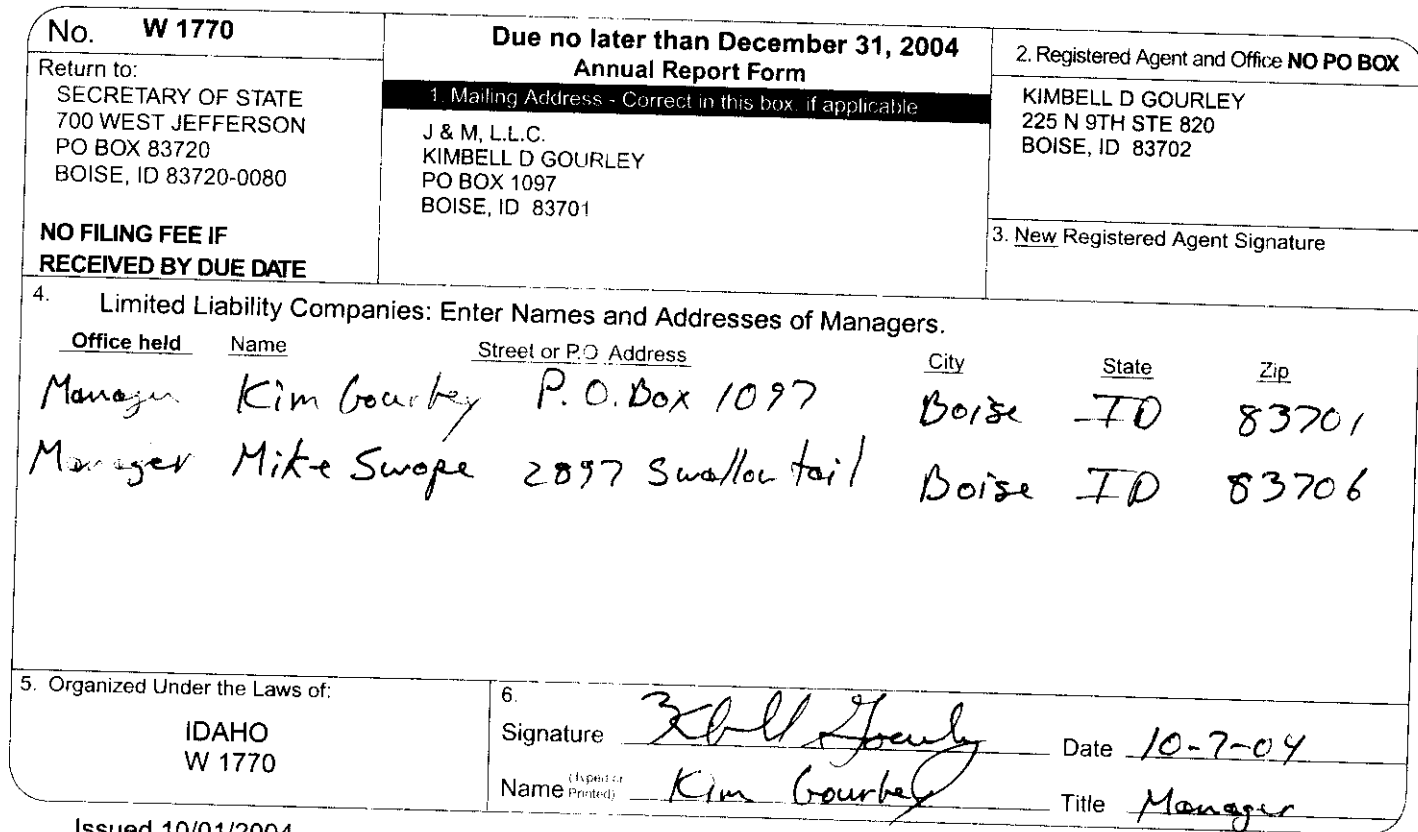 No. W 1770
Return to:
SECRETARY OF STATE
700 WEST JEFFERSON
PO BOX 83720
BOISE, ID 83720-0080
NO FILING FEE IF
RECEIVED BY DUE DATE
Due no later than December 31, 2004
Annual Report Form
1. Mailing Address - Correct in this box, if applicable
J & M, L.L.C.
KIMBELL D GOURLEY
PO BOX 1097
BOISE, ID 83701
2. Registered Agent and Office NO PO BOX
KIMBELL D GOURLEY
225 N 9TH STE 820
BOISE, ID 83702
3. New Registered Agent Signature
4. Limited Liability Companies: Enter Names and Addresses of Managers.
Office held Name Street or P.O. Address City State Zip
Manager Kim Gourley P. O. Box 1097 Boise ID 83701
Manager Mike Swope 2897 Swallow tail Boise ID 83706
5. Organized Under the Laws of:
IDAHO
W 1770
6.
Signature Date 10-7-04
Name (Typed or Printed) Kim Gourley Title Manager
Issued 10/01/2004